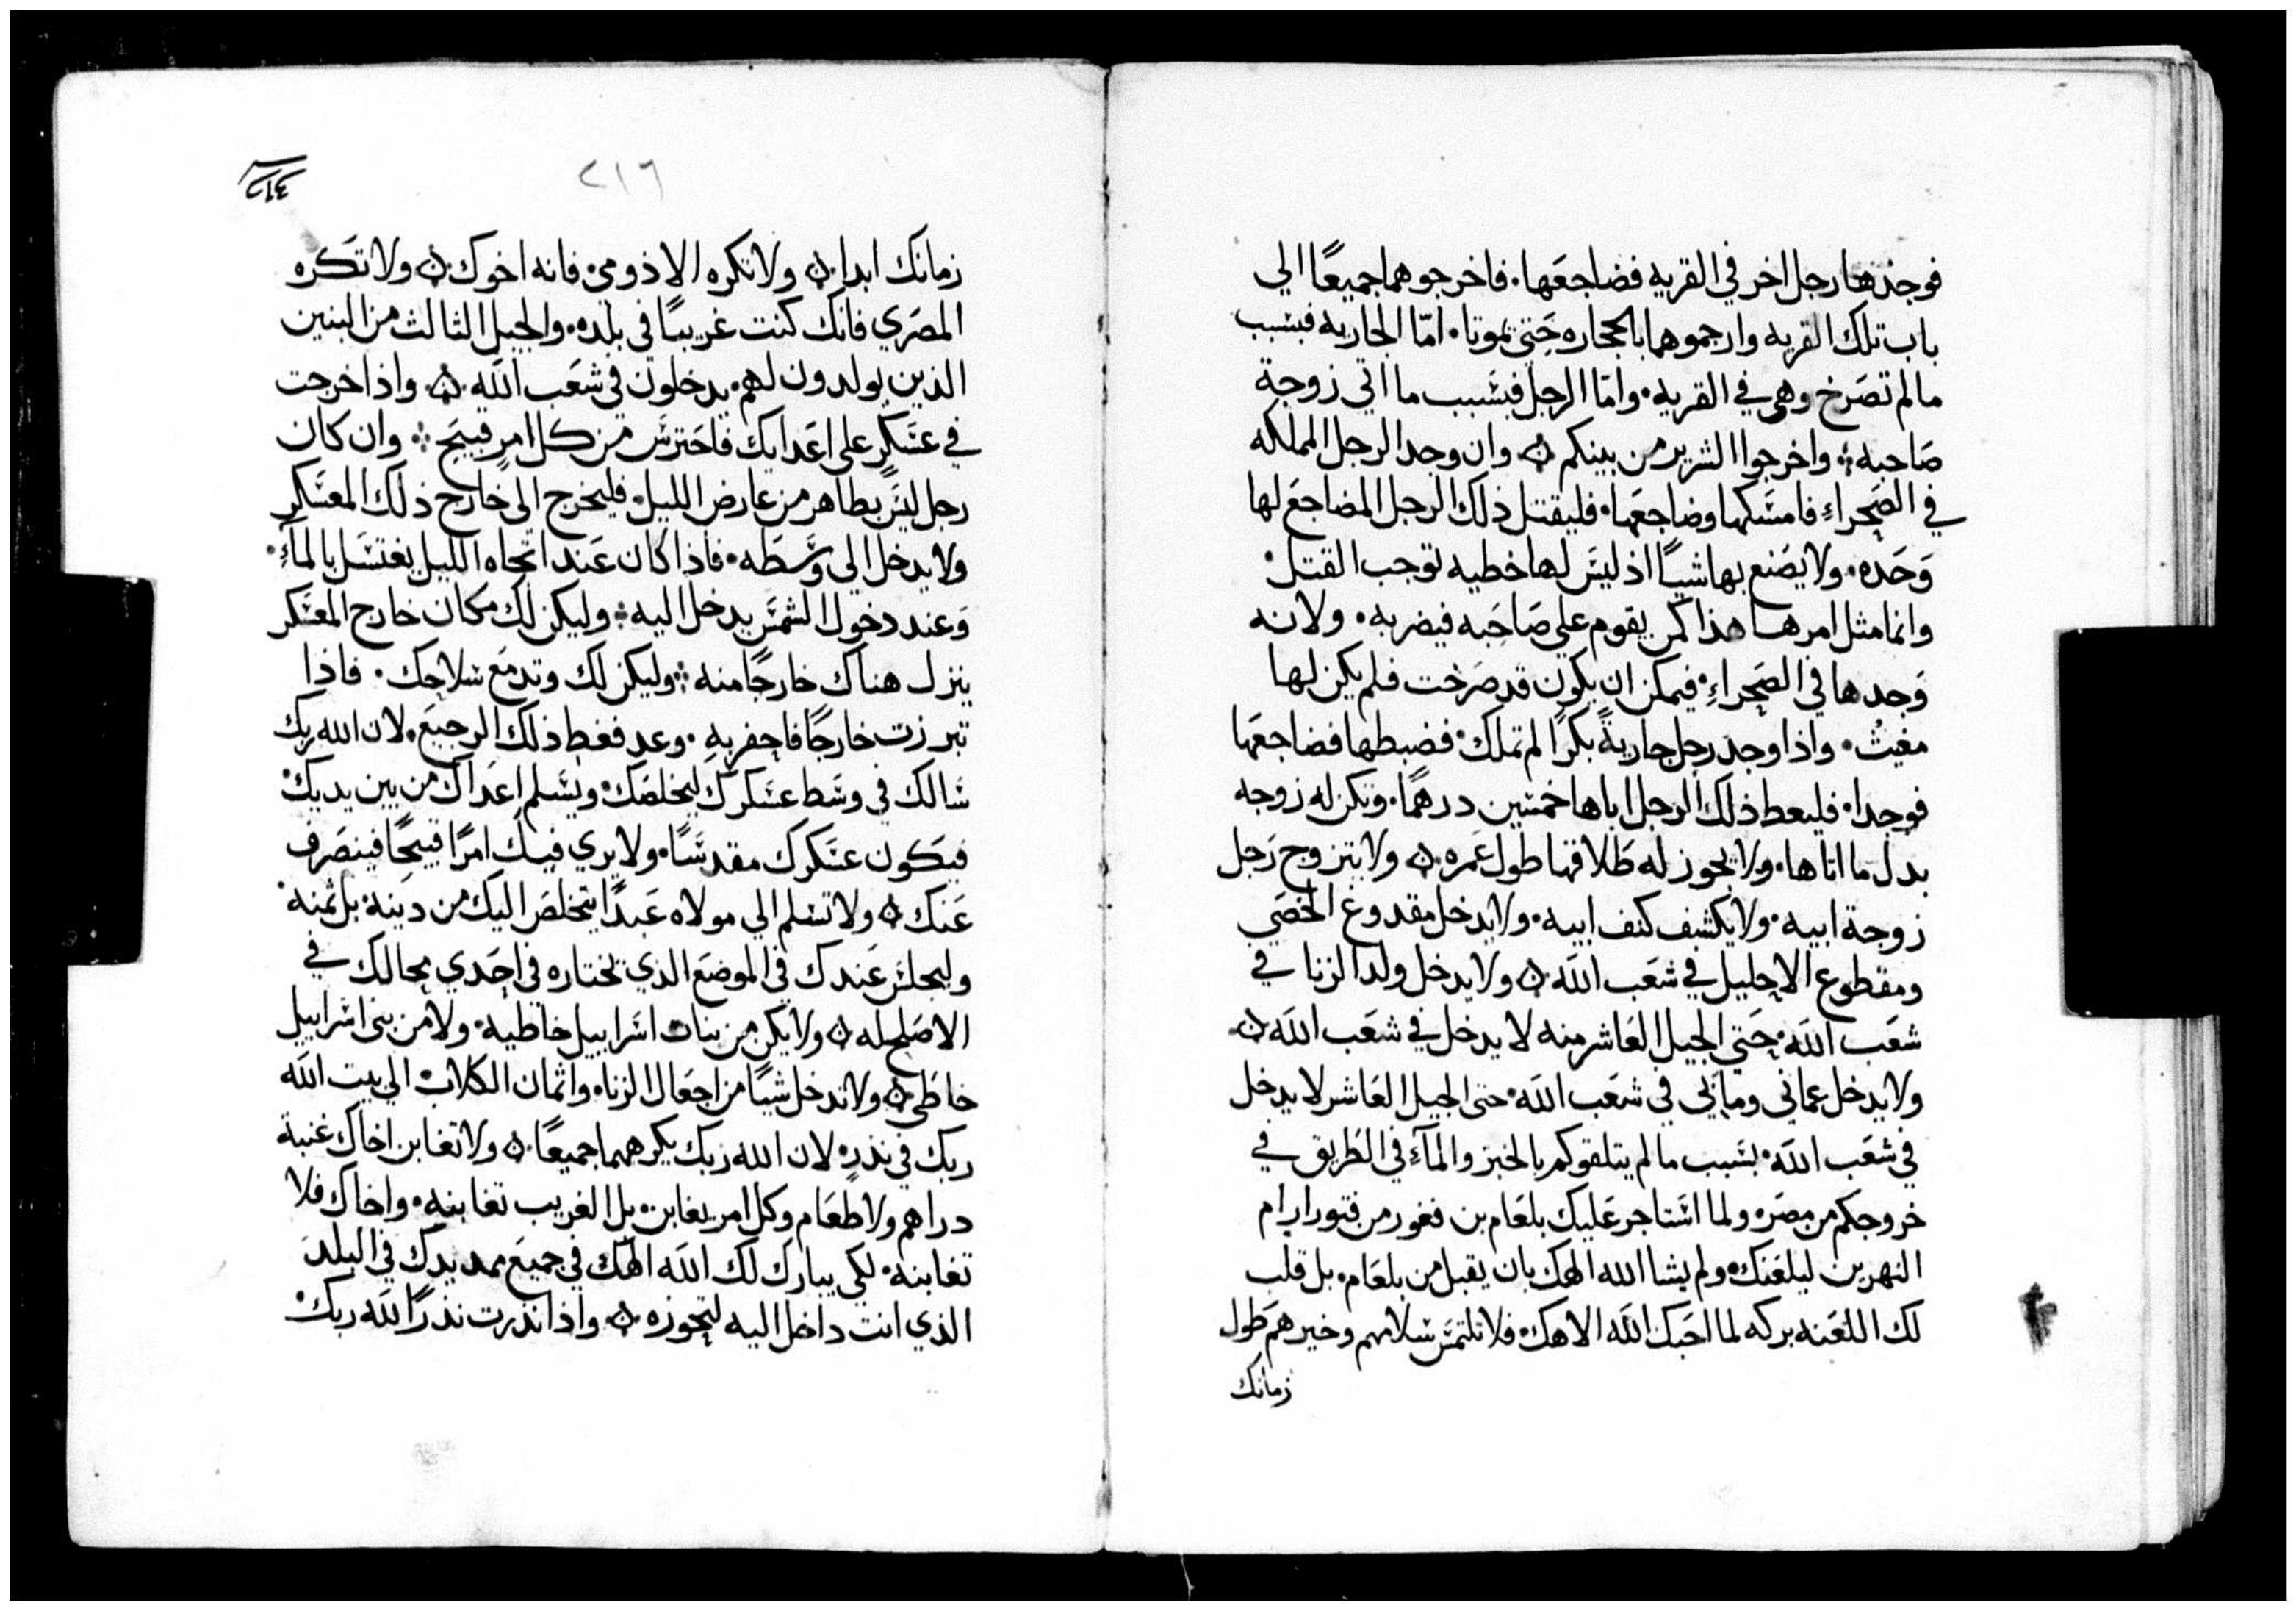 فوجدها رجل اخر في القريه فضاجعها. فاخرجوهما جميعًا الي
باب تلك القريه وارجموهما بالحجاره حتى يموتا. امّا الجاريه فبسبب
ما لم تصرخ وهي في القريه. وامّا الرجل فبسبب ما اتي زوجة
صاحبه ܀ واخرجوا الشرير من بينكم ܀ وان وجد الرجل المملكه
في الصحراءِ فامسكها وضاجعها. فليقتل ذلك الرجل المضاجع لها
وحده. ولا يصنع بها شيًا اذ ليس لها خطيه توجب القتل.
وانما مثل امرها هذا كمن يقوم علي صاحبه فيضربه. ولانه
وجدها في الصحراءِ. فيمكن ان يكون قد صرخت فلم يكن لها
مغيث. واذا وجد رجل جاريةً بكرًا لم تملك. فضبطها فضاجعها
فوجدا. فليعط ذلك الرجل اباها خمسين درهمًا. وتكن له زوجه
بدل ما اتاها. ولا يجوز له طلاقها طول عمره ܀ ولا يتزوج رجل
زوجة ابيه. ولا يكشف كنف ابيه. ولا يدخل مقدوع الخصي
ومقطوع الاحليل في شعب الله ܀ ولا يدخل ولد الزنا في
شعب الله. حتي الجيل العاشر منه لا يدخل في شعب الله ܀
ولا يدخل عماني وماٰبي في شعب الله. حتى الجيل العاشر لا يدخل
في شعب الله. بسبب ما لم يتلقوكم بالخبز والمآءِ في الطريق في
خروجكم من مصر. ولما استاجر عليك بلعام بن فغور من فتور ارام
النهرين ليلعنك. ولم يشا الله الهك بان يقبل من بلعام. بل قلب
لك اللعنه بركه لما احبك الله الاهك. فلا تلتمس سلامهم وخيرهم طول
زمانك
٢١٦
٢١٤
زمانك ابدا ܀ ولا تكره الاذومي. فانه اخوك ܀ ولا تكره
المصري فانك كنت غريبًا في بلده. والجيل الثالث من البنين
الذين يولدون لهم. يدخلون في شعب الله ܀ واذا خرجت
في عسكرٍ على اعدايك فاحترس من كل امرٍ قبيح ܀ وان كان
رجل ليس بطاهر من عارض الليل. فليخرج الى خارج ذلك المعسكر
ولا يدخل الي وسطه. فاذا كان عند اتجاه الليل يغتسل بالمآءِ.
وعند دخول الشمس يدخل اليه ܀ وليكن لك مكان خارج المعسكر
ينزل هناك خارجًا منه ܀ وليكن لك وتد مع سلاحك. فاذا
تبرزت خارجًا فاحفر بهِ. وعد فغط ذلك الرجيع. لان الله ربك
سالك في وسط عسكرك ليخلصك. ويسلم اعداك من بين يديك.
فيكون عسكرك مقدسًا. ولا يري فيك امرًا قبيحًا فينصرف
عنك ܀ ولا تسلم الي مولاه عبدًا يتخلص اليك من دينه. بل ثمنه.
وليجلس عندك في الموضع الذي تختاره في احدي محالك في
الاصلح له ܀ ولا يكن من بنات اسراييل خاطيه. ولا من بني اسراييل
خاطي ܀ ولا تدخل شيًا من اجعال الزنا. واثمان الكلاب الي بيت الله
ربك في نذرٍ لان الله ربك يكرههما جميعًا ܀ ولا تغابن اخاك غبنة
دراهم ولا طعام وكل امر يغابن. بل الغريب تغابنه. واخاك فلا
تغابنه. لكي يبارك لك الله الهك في جميع مد يدك في البلد
الذي انت داخل اليه لتحوزه ܀ واذا نذرت نذرًا لله ربك.